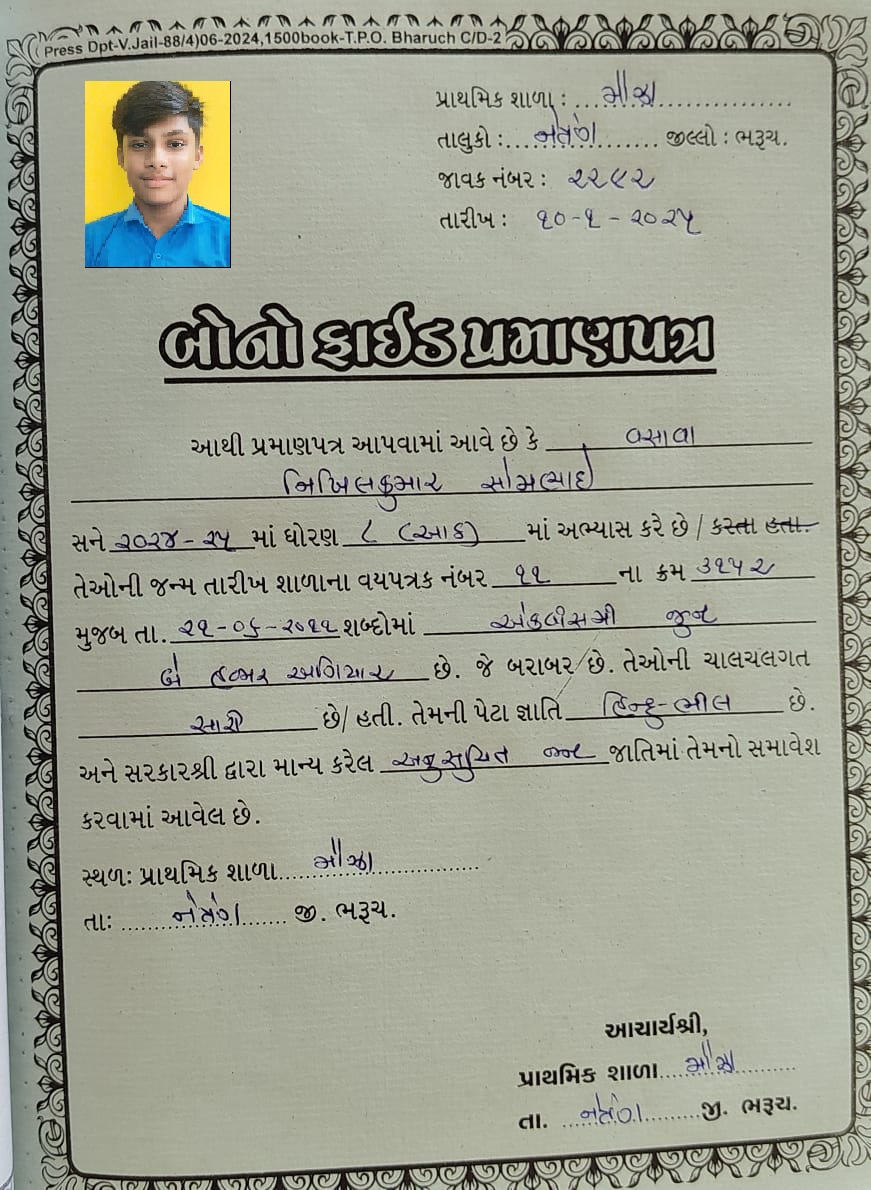 Press Dpt-V.Jail-88/4)06-2024,1500book-T.P.O. Bharuch C/D-2
પ્રાથમિક શાળા : ...મૌઝા...............
તાલુકો :......નેત્રંગ......... જીલ્લો : ભરૂચ.
જાવક નંબર : ૨૨૯૨
તારીખ : ૧૦-૧-૨૦૨૫
બોનોફાઈડ પ્રમાણપત્ર
આથી પ્રમાણપત્ર આપવામાં આવે છે કે વસાવા
નિખિલકુમાર સોમભાઈ
સને ૨૦૨૪-૨૫ માં ધોરણ ૮ (આઠ) માં અભ્યાસ કરે છે / કરતા હતા.
તેઓની જન્મ તારીખ શાળાના વયપત્રક નંબર ૧૧ ના ક્રમ ૩૧૫૨
મુજબ તા. ૨૧-૦૬-૨૦૧૧ શબ્દોમાં એકવીસમી જુન
બે હજાર અગિયાર છે. જે બરાબર છે. તેઓની ચાલચલગત
સારી છે/ હતી. તેમની પેટા જ્ઞાતિ હિન્દુ-ભીલ છે.
અને સરકારશ્રી દ્વારા માન્ય કરેલ અનુસુચિત જન જાતિમાં તેમનો સમાવેશ
કરવામાં આવેલ છે.
સ્થળ: પ્રાથમિક શાળા.....મૌઝા...............
તા: .......નેત્રંગ....... જી. ભરૂચ.
આચાર્યશ્રી,
પ્રાથમિક શાળા....મૌઝા..........
તા. ...નેત્રંગ.........જી. ભરૂચ.